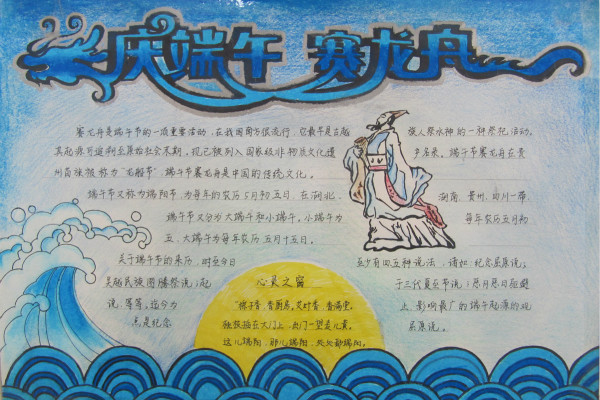 庆端午 赛龙舟
赛龙舟是端午节的一项重要活动，在我国南方很流行，它最早是古越族人祭水神的一种祭祀活动。
其起源可追溯至原始社会末期。现已被列入国家级非物质文化遗产名录。端午节赛龙舟在贵
州苗族被称为“龙船节”，端午节赛龙舟是中国的传统文化。
端午节又称为端阳节，为每年的农历5月初五日，在湖北、湖南、贵州、四川一带，
端午节又分为大端午和小端午。小端午为每年农历五月初
五，大端午为每年农历五月十五日。
关于端午节的来历，时至今日至少有四五种说法，诸如：纪念屈原说；
吴越民族图腾祭说；起于三代夏至节说；恶月恶日驱避
说，等等。迄今为止，影响最广的端午起源的观
点是纪念屈原说。
心灵之窗
“粽子香，香厨房。艾叶香，香满堂。
桃枝插在大门上，出门一望麦儿黄。
这儿端阳，那儿端阳，处处都端阳。